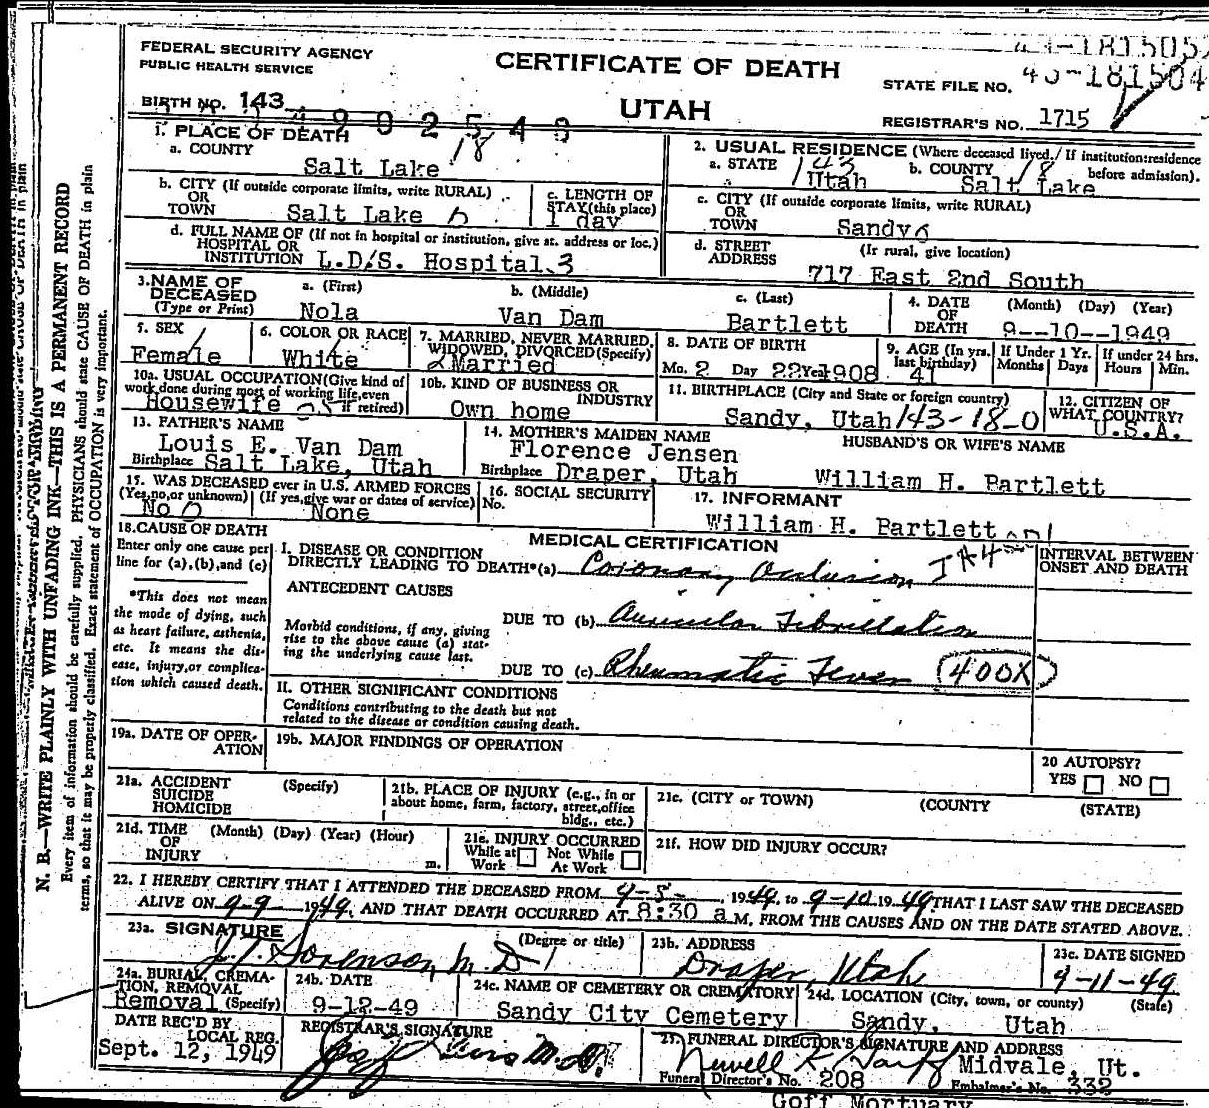 FEDERAL SECURITY AGENCY
PUBLIC HEALTH SERVICE
CERTIFICATE OF DEATH
UTAH
STATE FILE NO.
BIRTH NO. 143
REGISTRAR'S NO. 1715
1. PLACE OF DEATH
a. COUNTY
Salt Lake 18
b. CITY (If outside corporate limits, write RURAL)
OR
TOWN Salt Lake
c. LENGTH OF
STAY (this place)
1 day
d. FULL NAME OF (If not in hospital or institution, give st. address or loc.)
HOSPITAL OR
INSTITUTION L.D.S. Hospital 3
2. USUAL RESIDENCE (Where deceased lived. If institution: residence
before admission).
a. STATE 143
Utah
b. COUNTY 18
Salt Lake
c. CITY (If outside corporate limits, write RURAL)
OR
TOWN Sandy
d. STREET (Ir rural, give location)
ADDRESS
717 East 2nd South
3. NAME OF
DECEASED
(Type or Print)
a. (First)
Nola
b. (Middle)
Van Dam
c. (Last)
Bartlett
4. DATE (Month) (Day) (Year)
OF
DEATH 9--10--1949
5. SEX
Female
6. COLOR OR RACE
White
7. MARRIED, NEVER MARRIED,
WIDOWED, DIVORCED (Specify)
Married
8. DATE OF BIRTH
Mo. 2 Day 22 Year 1908
9. AGE (In yrs.
last birthday)
41
If Under 1 Yr.
Months Days
If under 24 hrs.
Hours Min.
10a. USUAL OCCUPATION (Give kind of
work done during most of working life, even
if retired)
Housewife
10b. KIND OF BUSINESS OR
INDUSTRY
Own home
11. BIRTHPLACE (City and State or foreign country)
Sandy, Utah 143-18-0
12. CITIZEN OF
WHAT COUNTRY?
U.S.A.
13. FATHER'S NAME
Louis E. Van Dam
Birthplace Salt Lake, Utah
14. MOTHER'S MAIDEN NAME
Florence Jensen
Birthplace Draper, Utah
HUSBAND'S OR WIFE'S NAME
William H. Bartlett
15. WAS DECEASED ever in U.S. ARMED FORCES
(Yes, no, or unknown) (If yes, give war or dates of service)
No None
16. SOCIAL SECURITY
No.
17. INFORMANT
William H. Bartlett
18. CAUSE OF DEATH
Enter only one cause per
line for (a), (b), and (c)
*This does not mean
the mode of dying, such
as heart failure, asthenia,
etc. It means the dis-
ease, injury, or complica-
tion which caused death.
MEDICAL CERTIFICATION
I. DISEASE OR CONDITION
DIRECTLY LEADING TO DEATH*(a) Coronary Occlusion
INTERVAL BETWEEN
ONSET AND DEATH
ANTECEDENT CAUSES
Morbid conditions, if any, giving
rise to the above cause (a) stat-
ing the underlying cause last.
DUE TO (b) Auricular Fibrillation
DUE TO (c) Rheumatic Fever 400X
II. OTHER SIGNIFICANT CONDITIONS
Conditions contributing to the death but not
related to the disease or condition causing death.
19a. DATE OF OPER-
ATION
19b. MAJOR FINDINGS OF OPERATION
20 AUTOPSY?
YES NO
21a. ACCIDENT (Specify)
SUICIDE
HOMICIDE
21b. PLACE OF INJURY (e.g., in or
about home, farm, factory, street, office
bldg., etc.)
21c. (CITY or TOWN) (COUNTY (STATE)
21d. TIME (Month) (Day) (Year) (Hour)
OF
INJURY m.
21e. INJURY OCCURRED
While at Not While
Work At Work
21f. HOW DID INJURY OCCUR?
22. I HEREBY CERTIFY THAT I ATTENDED THE DECEASED FROM 9-5-, 1949, to 9-10 1949, THAT I LAST SAW THE DECEASED
ALIVE ON 9-9 1949, AND THAT DEATH OCCURRED AT 8:30 a M. FROM THE CAUSES AND ON THE DATE STATED ABOVE.
23a. SIGNATURE (Degree or title)
J.T. Sorenson, M.D.
23b. ADDRESS
Draper, Utah
23c. DATE SIGNED
9-11-49
24a. BURIAL, CREMA-
TION, REMOVAL
Removal (Specify)
24b. DATE
9-12-49
24c. NAME OF CEMETERY OR CREMATORY
Sandy City Cemetery
24d. LOCATION (City, town, or county) (State)
Sandy, Utah
DATE REC'D BY
LOCAL REG.
Sept. 12, 1949
REGISTRAR'S SIGNATURE
25. FUNERAL DIRECTOR'S SIGNATURE AND ADDRESS
Newell Midvale, Ut.
Funeral Director's No. 208 Embalmer's No. 332
Goff Mortuary
N. B.—WRITE PLAINLY WITH UNFADING INK—THIS IS A PERMANENT RECORD
Every item of information should be carefully supplied. PHYSICIANS should state CAUSE OF DEATH in plain
terms, so that it may be properly classified. Exact statement of OCCUPATION is very important.